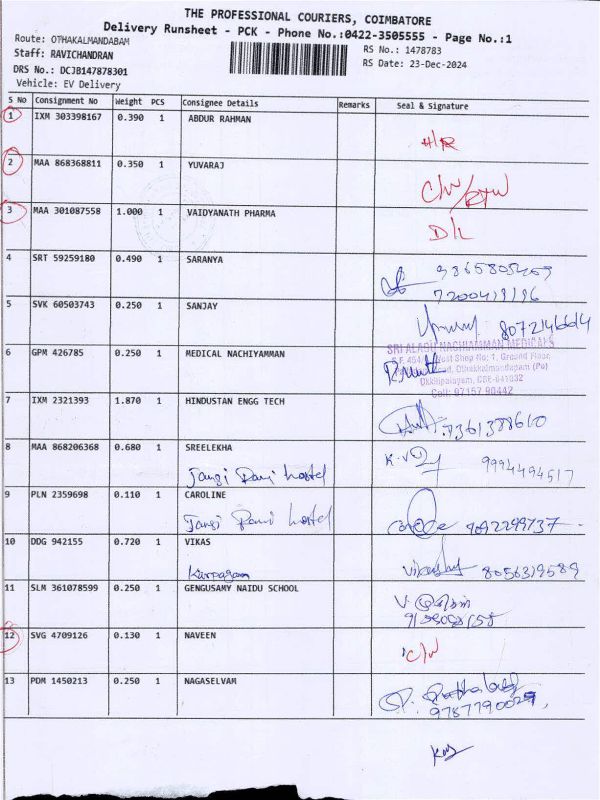 THE PROFESSIONAL COURIERS, COIMBATORE
Delivery Runsheet - PCK - Phone No.:0422-3505555 - Page No.:1
Route: OTHAKALMANDABAM
Staff: RAVICHANDRAN
DRS No.: DCJB147878301
Vehicle: EV Delivery
RS No.: 1478783
RS Date: 23-Dec-2024
S No Consignment No Weight PCS Consignee Details Remarks Seal & Signature
1 IXM 303398167 0.390 1 ABDUR RAHMAN
H/R
2 MAA 868368811 0.350 1 YUVARAJ
3 MAA 301087558 1.000 1 VAIDYANATH PHARMA
D/L
4 SRT 59259180 0.490 1 SARANYA
5 SVK 60503743 0.250 1 SANJAY
SRI ALAGU NACHIAMMAN MEDICALS
6 GPM 426785 0.250 1 MEDICAL NACHIYAMMAN
West Shop No: 1, Ground Floor,
Othakkalmandapam (Po)
Cell: 97157 90442
7 IXM 2321393 1.870 1 HINDUSTAN ENGG TECH
8 MAA 868206368 0.680 1 SREELEKHA
9994494517
hostel
9 PLN 2359698 0.110 1 CAROLINE
hostel 9092299737
10 DDG 942155 0.720 1 VIKAS
Karpagam 8056319589
11 SLM 361078599 0.250 1 GENGUSAMY NAIDU SCHOOL
12 SVG 4709126 0.130 1 NAVEEN
C/W
13 PDM 1450213 0.250 1 NAGASELVAM